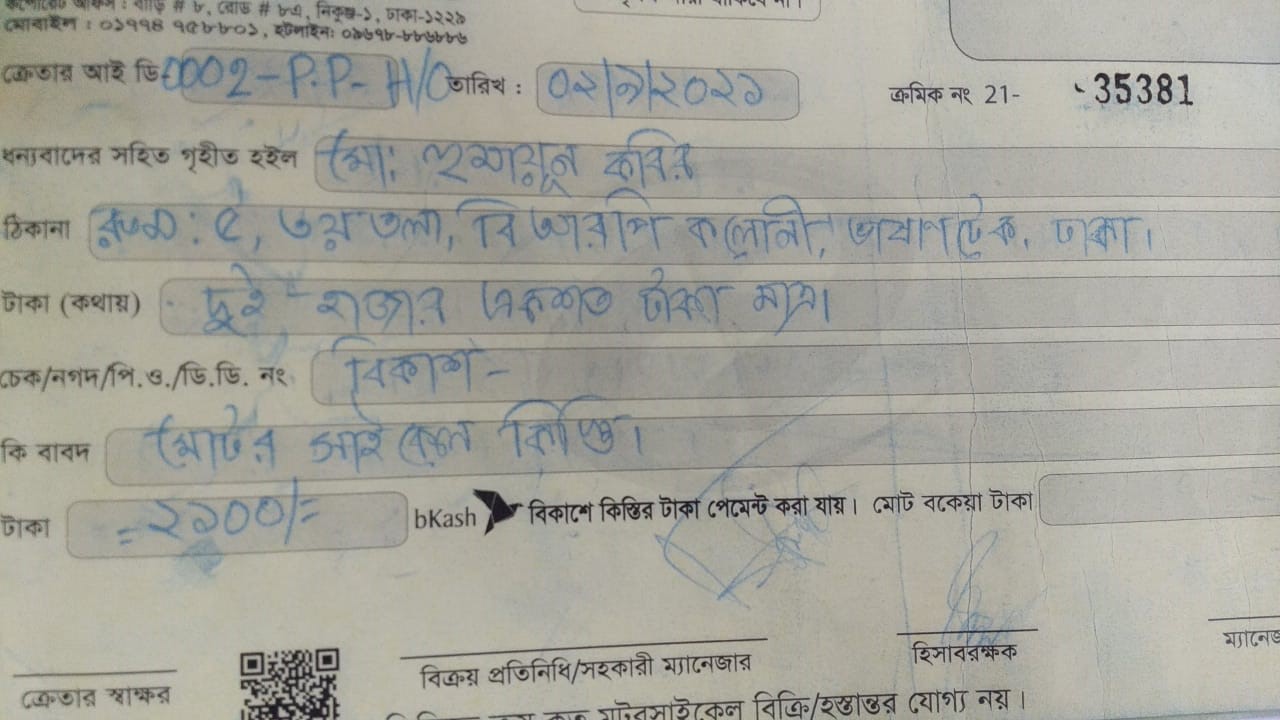 বাড়ি # ৮, রোড # ৮এ, নিকুঞ্জ-১, ঢাকা-১২২৯
মোবাইল : ০১৭৭৪ ৭৫৮৮০১,
ক্রেতার আই ডি 0002-P.P-H/O তারিখ : ০২/৯/২০২১ ক্রমিক নং 21- 35381
ধন্যবাদের সহিত গৃহীত হইল মো: হুমায়ূন কবির
ঠিকানা রুম: ৫, ৩য় তলা, বিআরপি কলোনী, ঢাকা।
টাকা (কথায়) দুই হাজার একশত টাকা মাত্র।
চেক/নগদ/পি.ও./ডি.ডি. নং বিকাশ -
কি বাবদ মোটর সাইকেল কিস্তি।
টাকা = ২১০০/=
bKash বিকাশে কিস্তির টাকা পেমেন্ট করা যায়। মোট বকেয়া টাকা
ক্রেতার স্বাক্ষর বিক্রয় প্রতিনিধি/সহকারী ম্যানেজার হিসাবরক্ষক
মটরসাইকেল বিক্রি/হস্তান্তর যোগ্য নয়।